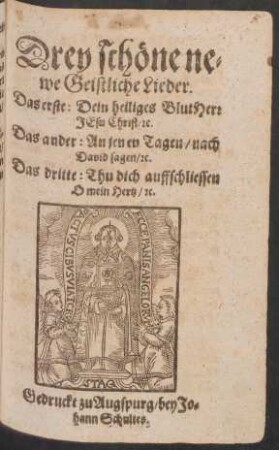 Drey schöne ne-
we Geistliche Lieder.
Das erste: Dein heiliges Blut Herr
JEsu Christ/ ⁊c.
Das ander: An jenen Tagen/ nach
David sagen/ ⁊c.
Das dritte: Thu dich auffschliessen
O mein Hertz/ ⁊c.
Gedruckt zu Augspurg/ bey Jo-
hann Schultes.